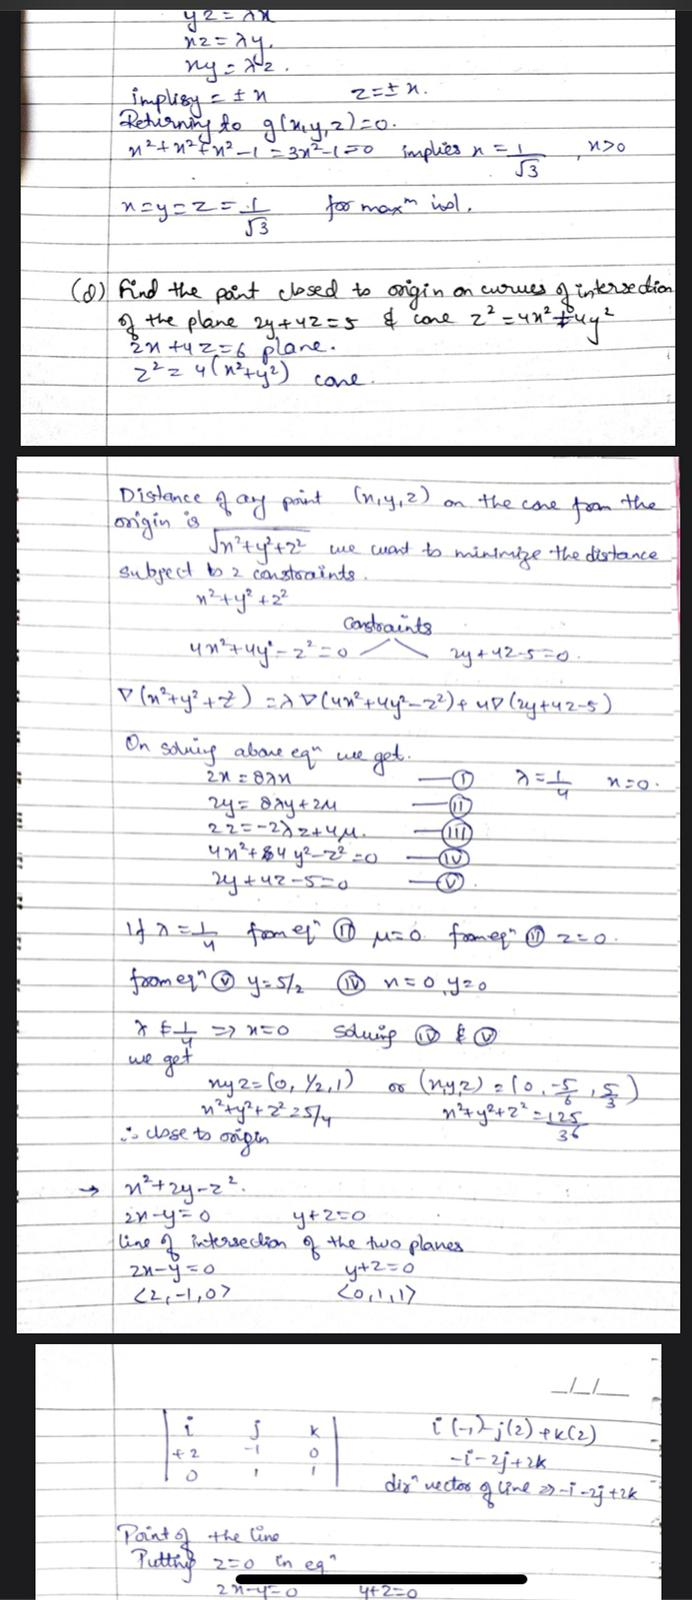 yz = λx
xz = λy.
xy = λz.
implisy = ± x z = ± x.
Returning to g(x,y,z)=0.
x²+x²+x²-1 = 3x²-1=0 implies x = 1/√3, x>0
x=y=z= 1/√3 for maxᵐ vol.
(d) Find the point closed to origin on curves of intersection
of the plane 2y+4z=5 & cone z²=4x²+4y²
2x+4z=6 plane.
z² = 4(x²+y²) cone.
Distance of any point (x,y,z) on the cone from the
origin is
√x²+y²+z² we want to minimize the distance
subject to 2 constraints.
x²+y²+z²
Constraints
4x²+4y²-z²=0 2y+4z-5=0.
∇(x²+y²+z²) = λ∇(4x²+4y²-z²)+μ∇(2y+4z-5)
On solving above eqⁿ we get.
2x = 8λx —(I) λ=1/4 x=0.
2y= 8λy+2μ —(II)
2z=-2λz+4μ. —(III)
4x²+4y²-z²=0 —(IV)
2y+4z-5=0 —(V)
If λ=1/4 from eqⁿ (II) μ=0. from eqⁿ (III) z=0.
from eqⁿ (V) y=5/2 (IV) x=0, y=0
λ ≠ 1/4 => x=0 Solving (IV) & (V)
we get
xyz=(0, 1/2, 1) or (x,y,z) = (0, -5/6, 5/3)
x²+y²+z²=5/4 x²+y²+z²=125/36
∴ close to origin
→ x²+2y-z².
2x-y=0 y+z=0
line of intersection of the two planes
2x-y=0 y+z=0
<2,-1,0> <0,1,1>
_/_/_
i j k i(-1)-j(2)+k(2)
+2 -1 0 -i-2j+2k
0 1 1 dirⁿ vector of line => -i-2j+2k
Point of the line
Putting z=0 in eqⁿ
2x-y=0 y+z=0